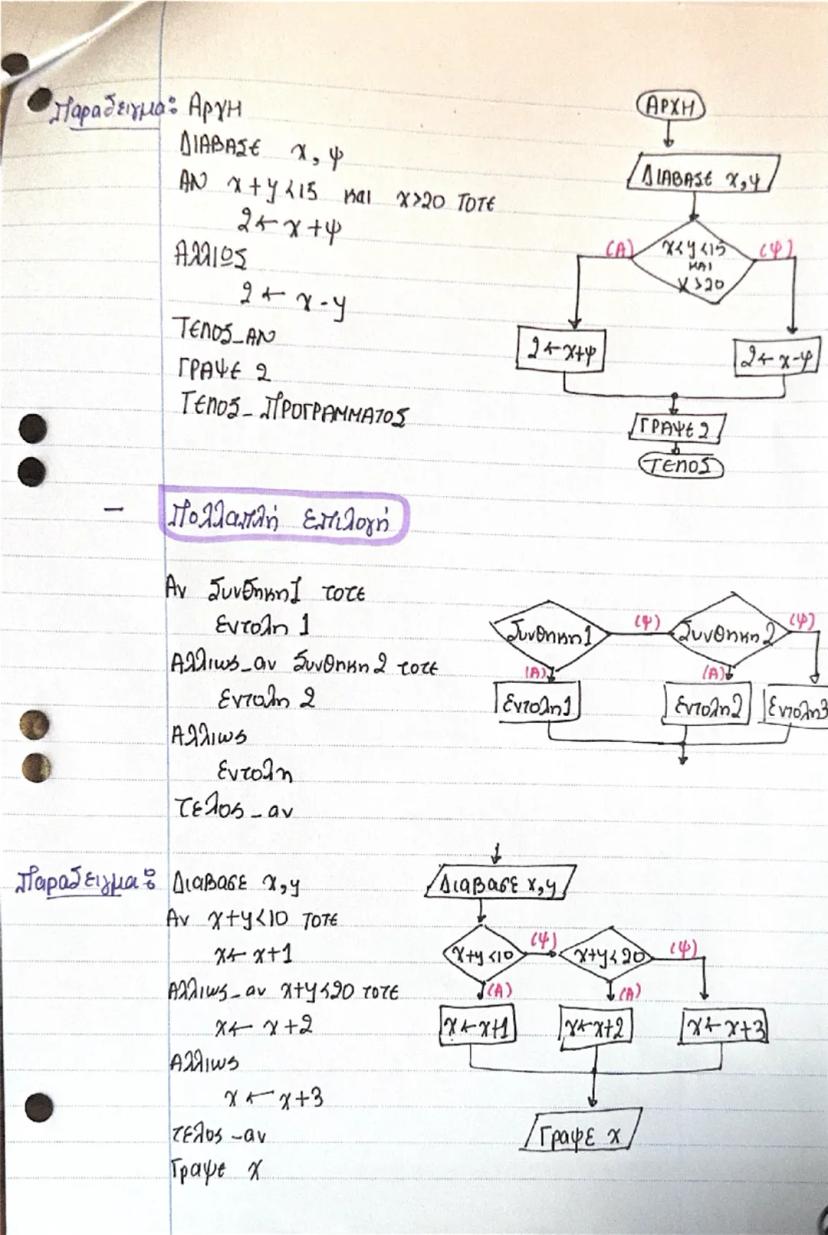 Παραδειγμα: ΑρχΗ
ΔΙΑΒΑΣΕ χ, ψ
ΑΝ χ+y<15 και χ>20 ΤΟΤΕ
2 ← χ+ψ
Αλλιως
2 ← χ-y
ΤΕΛΟΣ_ΑΝ
ΓΡΑΨΕ 2
ΤΕΛΟΣ_ΠΡΟΓΡΑΜΜΑΤΟΣ
ΑΡΧΗ
ΔΙΑΒΑΣΕ χ,ψ
(Α)
χ<y<15
και
χ>20
(Ψ)
2←χ+ψ
2←χ-ψ
ΓΡΑΨΕ 2
ΤΕΛΟΣ
- Πολλαπλή επιλογή
Αν Συνθηκη1 τοτε
εντολη 1
Αλλιως_αν Συνθηκη 2 τοτε
εντολη 2
Αλλιως
εντολη
τελος_αν
Συνθηκη1
(Ψ)
Συνθηκη 2
(Ψ)
(Α)
(Α)
Εντολη1
Εντολη2
Εντολη3
Παραδειγμα: ΔιαΒαΣΕ χ,y
Αν χ+y<10 ΤΟΤΕ
χ← χ+1
Αλλιως_αν χ+y<20 τοτε
χ← χ+2
Αλλιως
χ ← χ+3
τελος_αν
Γραψε χ
ΔιαΒαΣΕ χ,y
χ+y<10
(Ψ)
χ+y<20
(Ψ)
(Α)
(Α)
χ←χ+1
χ←χ+2
χ← χ+3
Γραψε χ